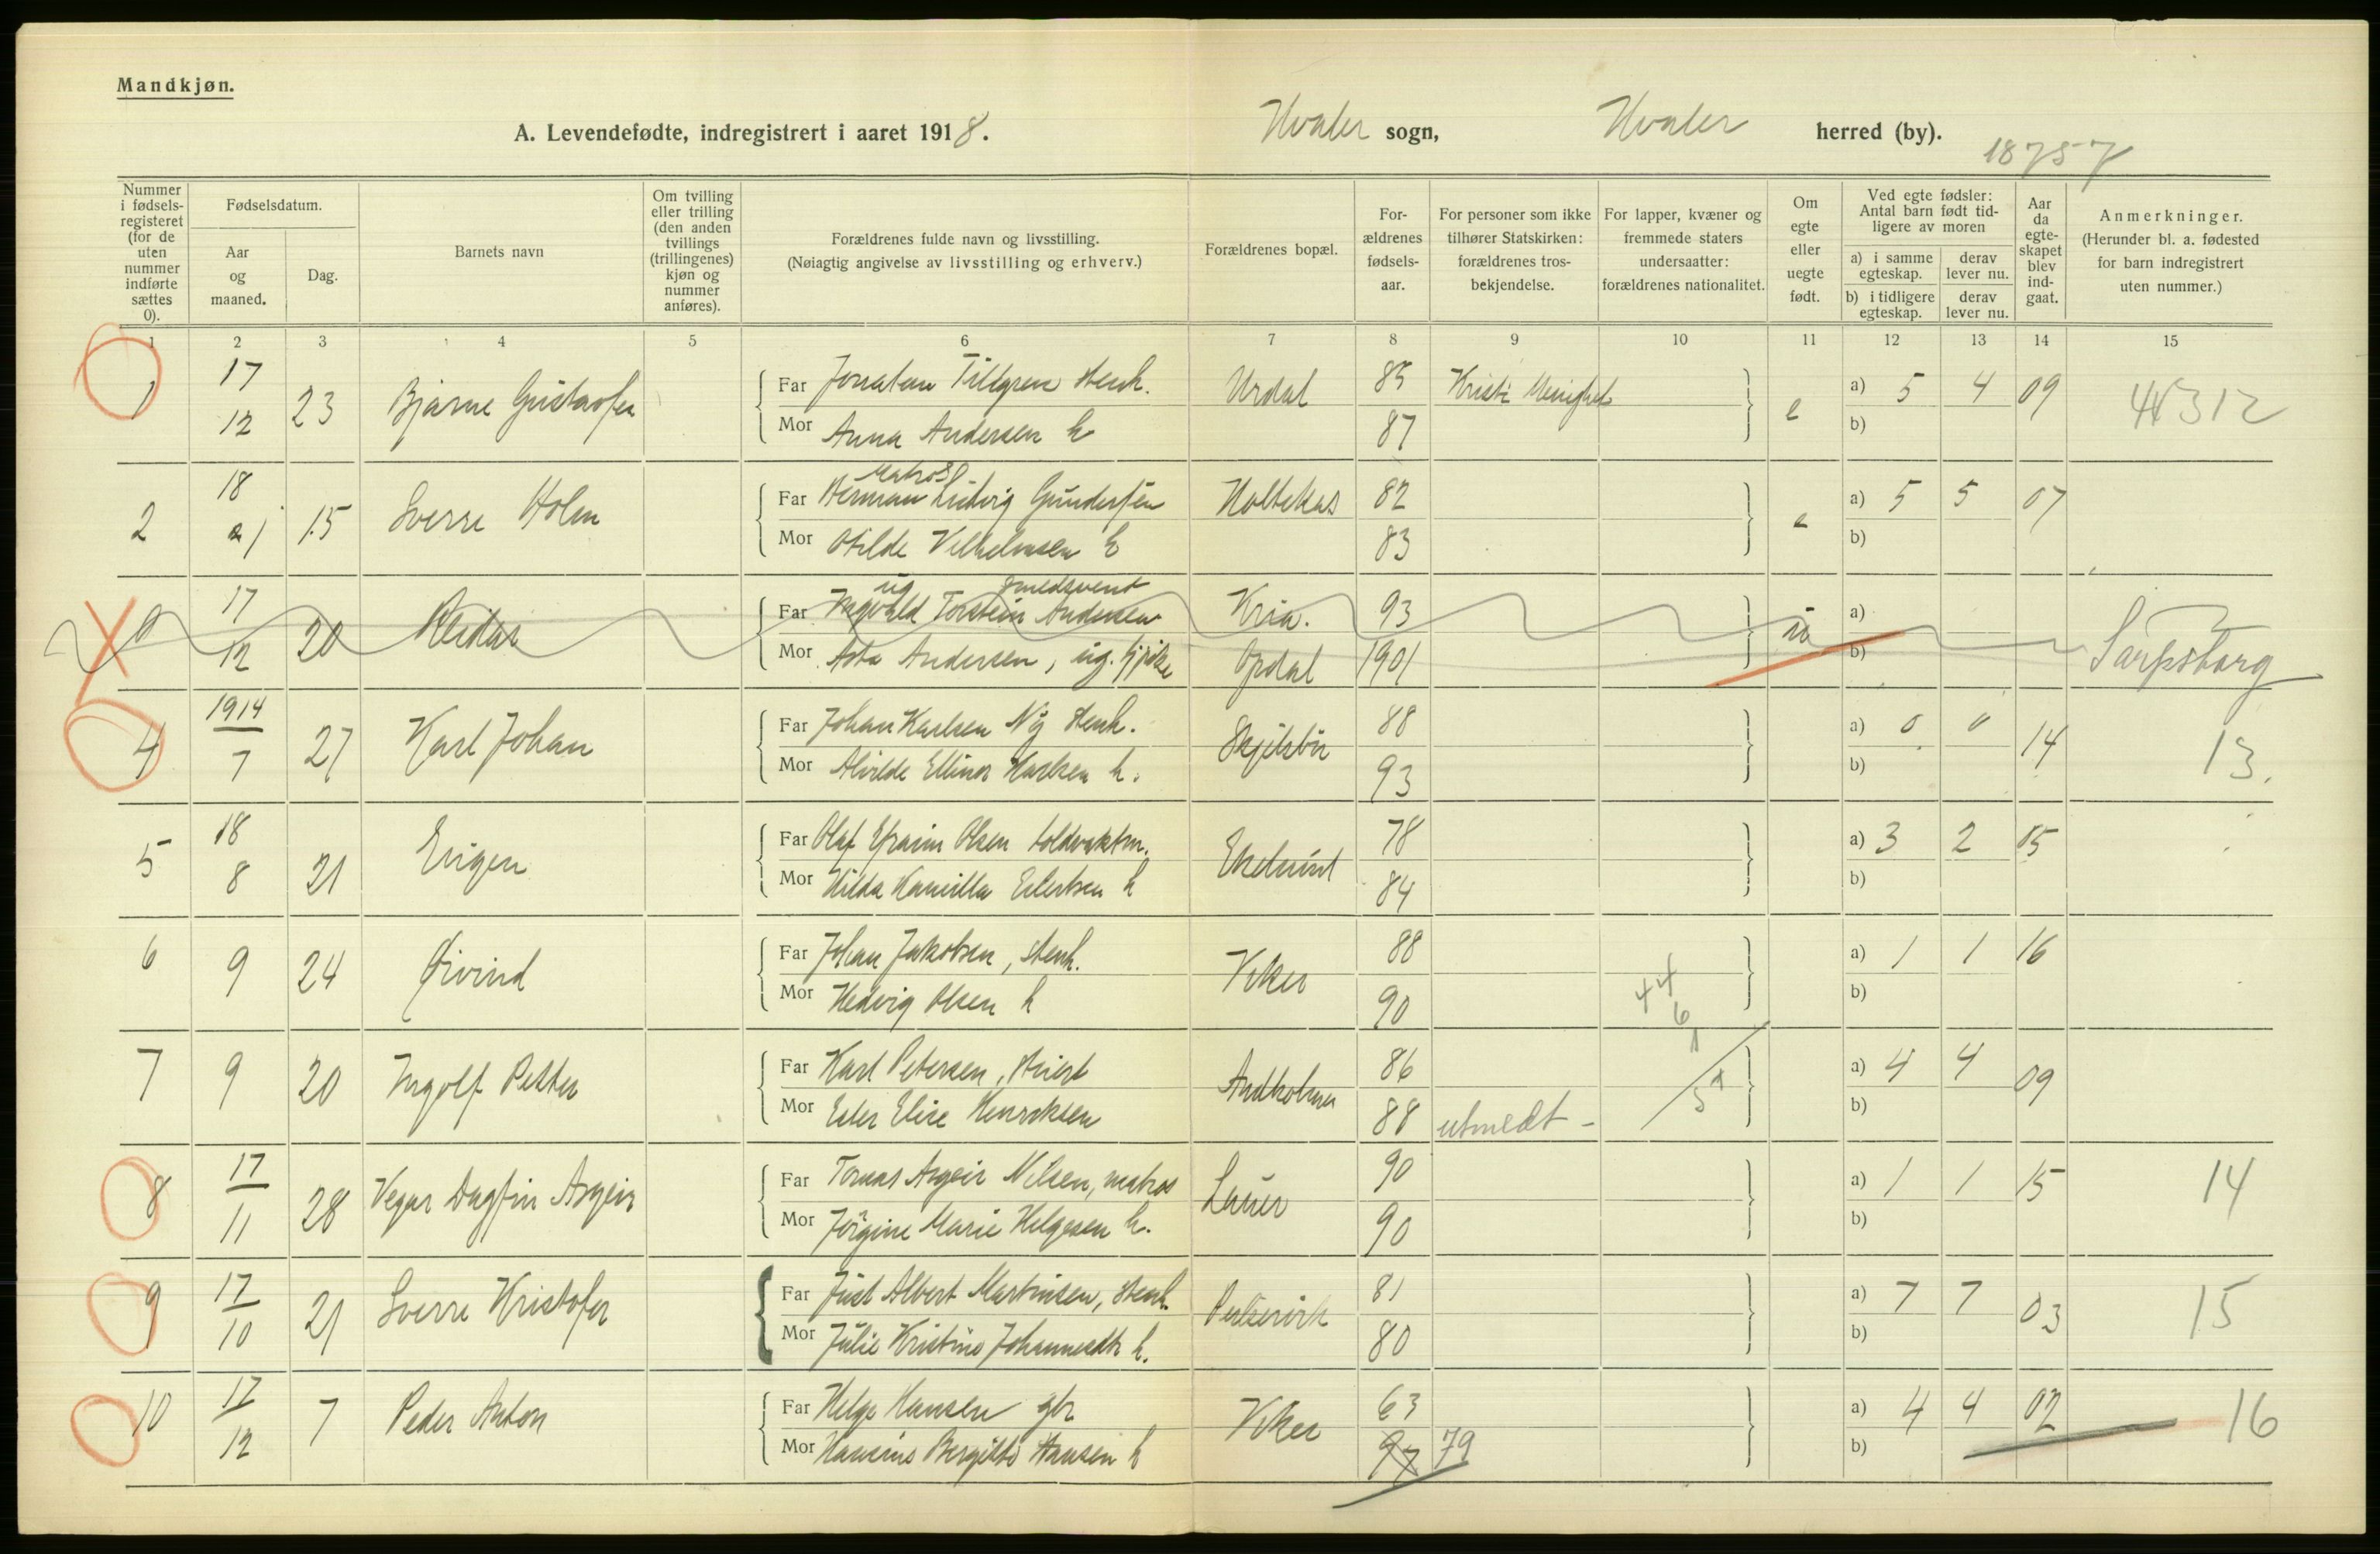 Mandkjøn.
A. Levendefødte, indregistrert i aaret 1918.
Hvaler sogn, Hvaler herred (by).
18757
Nummer i fødsels-registeret (for de uten nummer indførte sættes 0).
Fødselsdatum.
Aar og maaned.
Dag.
Barnets navn
Om tvilling eller trilling (den anden tvillings (trillingenes) kjøn og nummer anføres).
Forældrenes fulde navn og livsstilling.
(Nøiagtig angivelse av livsstilling og erhverv.)
Forældrenes bopæl.
For-ældrenes fødsels-aar.
For personer som ikke tilhører Statskirken: forældrenes tros-bekjendelse.
For lapper, kvæner og fremmede staters undersaatter: forældrenes nationalitet.
Om egte eller uegte født.
Ved egte fødsler: Antal barn født tid-ligere av moren
a) i samme egteskap. derav lever nu.
b) i tidligere egteskap. derav lever nu.
Aar da egte-skapet blev ind-gaat.
Anmerkninger.
(Herunder bl. a. fødested for barn indregistrert uten nummer.)
1 2 3 4 5 6 7 8 9 10 11 12 13 14 15
1 17 12 23 Bjarne Gustav
Far Jonatan Tillgren stenh. Urdal 85 Kristi Menighet e a) 5 4 09 312
Mor Anna Andersen h 87 b)
2 18 1 15 Sverre Holm
matros
Far Herman Ludvig Gundersen 82 e a) 5 5 07
Mor Otilde Vilhelmsen h 83 b)
0 17 12 20 Reidar
ug smedsvend
Far Ingvald Torstein Andersen Kria. 93 a)
Mor Asta Andersen, ug. Opdal 1901 b) Sarpsborg
4 1914 7 27 Karl Johan
Far Johan Karlsen Ny stenh. Skjelsbu 88 a) 0 0 14 13.
Mor Alvilde Ellinor Karlsen h. 93 b)
5 18 8 21 Eugen
Far Olaf Efraim Olsen toldvaktm. Ekelund 78 a) 3 2 05
Mor Hilda Kamilla Eilertsen h 84 b)
6 9 24 Øivind
Far Johan Jakobsen, stenh. Viker 88 a) 1 1 16
Mor Hedvig Olsen h 90 44 b)
6
7 9 20 Ingolf Petter
Far Karl Petersen, stuert 86 a) 4 4 09
Mor Ester Elise Henriksen 88 utmeldt - b)
8 17 11 28 Vegar Dagfin Asgeir
Far Tomas Asgeir Nilsen, matros Lauer 90 a) 1 1 15 14
Mor Jørgine Marie Helgesen h. 90 b)
9 17 10 21 Sverre Kristofer
Far Just Albert Martinsen, stenh. 81 a) 7 7 03 15
Mor Julie Kristine Johannesdtr h. 80 b)
10 17 12 7 Peder Anton
Far Helge Hansen gbr Viker 63 a) 4 4 02 16
Mor Bergitte Hansen h 97 79 b)